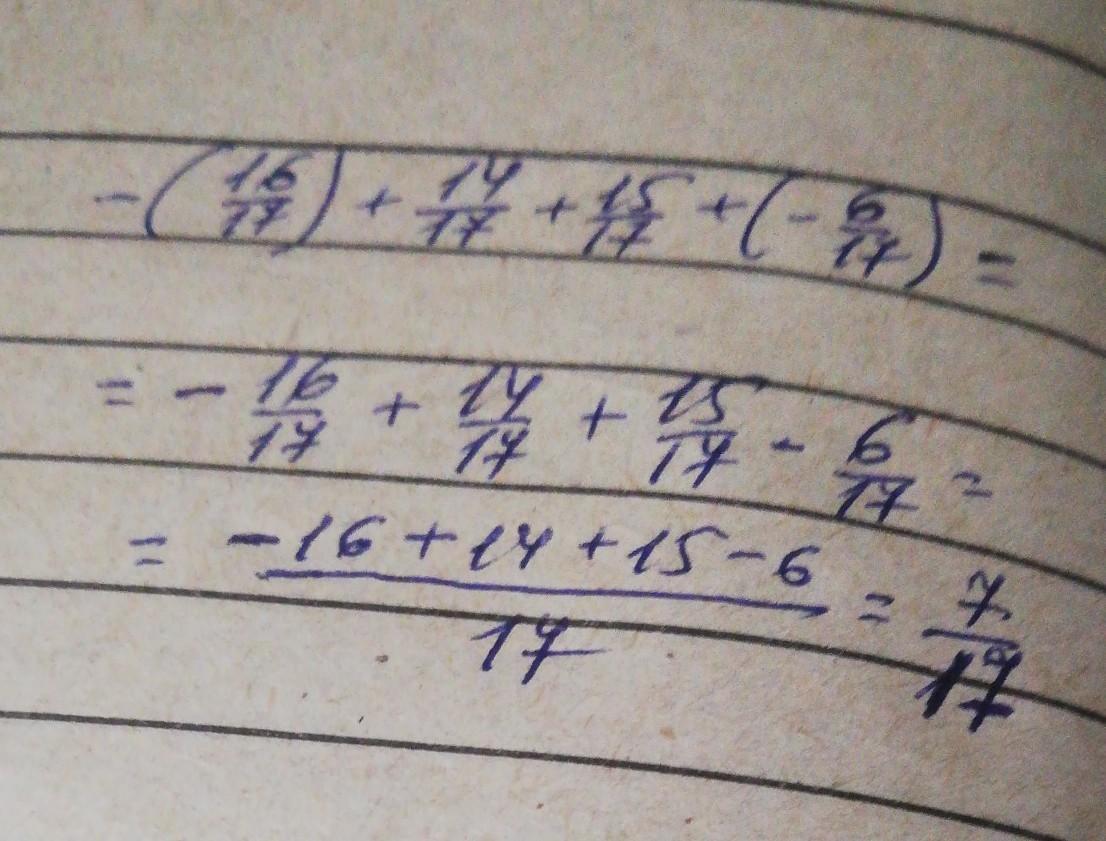 -(16/17) + 14/17 + 15/17 + (-6/17) =
= - 16/17 + 14/17 + 15/17 - 6/17 =
= (-16 + 14 + 15 - 6)/17 = 7/17